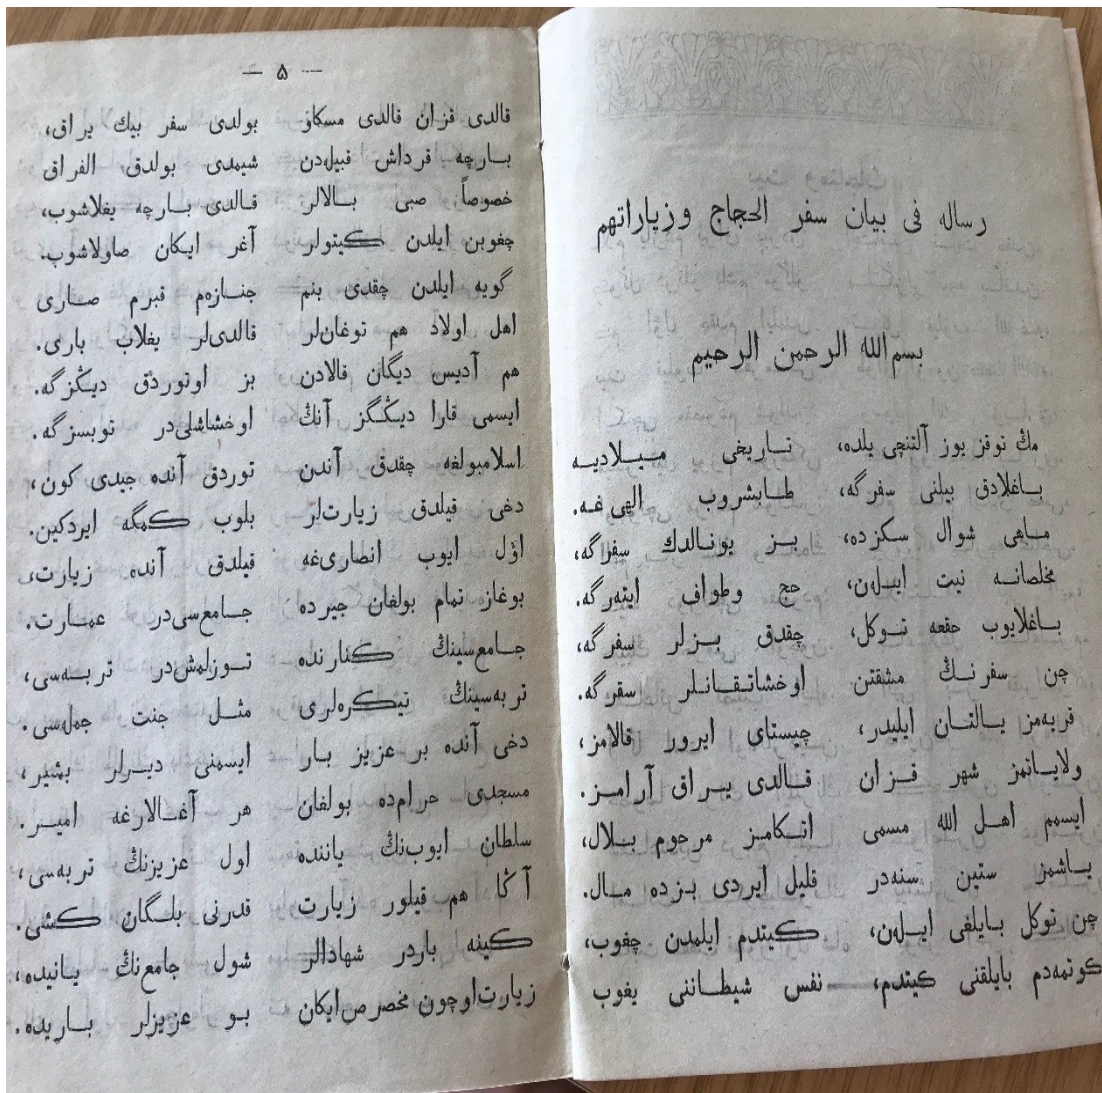 رساله فى بيان سفر الحجاج وزياراتهم
بسم الله الرحمن الرحيم
مڭ توقز يوز آلتنچى يلده، تـاريخى ميـلاديـه
بـاغلادق بيلنى سفرگه، طـابشروب الهى غـه.
مـاهى شوال سكزده، بـز يونـالدك سفرگه،
مخلصانـه نيت ايـلەن، حج وطواف ايتەرگه.
بـاغلايوب حقعه تـوكل، چقدق بـزلر سفرگه،
چن سفرنـڭ مشقتن اوخشاتـقـانـلر سقرگه.
قريەمز يـالتـان ايليدر، چيستاى ايرور قالامز،
ولايـاتمز شهر قـزان قـالدى يـراق آرامـز.
ايسمم اهـل الله مسمى اتـكامـز مرحوم بـلال،
يـاشمز ستين سنەدر قليل ايردى بـزده مـال.
چن توكل بـايلغى ايـلەن، كيتدم ايلمدن چغوب،
كوتمەدم بايلقنى كيتدم، نفس شيطـاننى يغوب
— ۵ —
قالدى قزان قالدى مسكاو بولدى سفر بيك يراق،
بـارچه قرداش قبيل‌دن شيمدى بولدق الفراق
خصوصاً صبى بـالالر قـالدى بـارچه يغلاشوب،
چغوبن ايلدن كيتولر آغر ايكان صاولاشوب.
گويه ايلدن چقدى بنم جنازەم قبرم صـارى
اهل اولاد هم توغان‌لر قالدى‌لر يغلاب بارى.
هم آديس ديگان قالادن بز اوتوردق ديڭزگه.
ايسمى قارا ديڭگز آنڭ اوخشاشلى‌در توبسزگه.
اسلامبولغه چقدق آندن توردق آنده جيدى كون،
دخى قيلدق زيارت‌لر بلوب كمگه ايردكين.
اوّل ايوب انصارى‌غه قيلدق آنده زيارت،
بوغاز تمام بولغان جيرده جـامع‌سى‌در عمـارت.
جـامع‌سينڭ كنارنده تـوزلمش‌در تربـه‌سى،
تربه‌سينڭ تيكره‌لرى مثـل جنت جمله‌سى.
دخى آنده بر عزيز بـار ايسمنى ديـرلر بشير،
مسجدى حرام‌ده بولغان هر آغـالارغه اميـر.
سلطان ايوب‌نڭ ياننده اول عزيزنڭ تربه‌سى،
آڭا هم قيلور زيارت قدرنى بلـگان كشى.
كينه باردر شهادالر شول جامع‌نڭ يـانيده،
زيارت‌اوچون مخصوص‌ايكان بـو عزيزلر بـاريده.